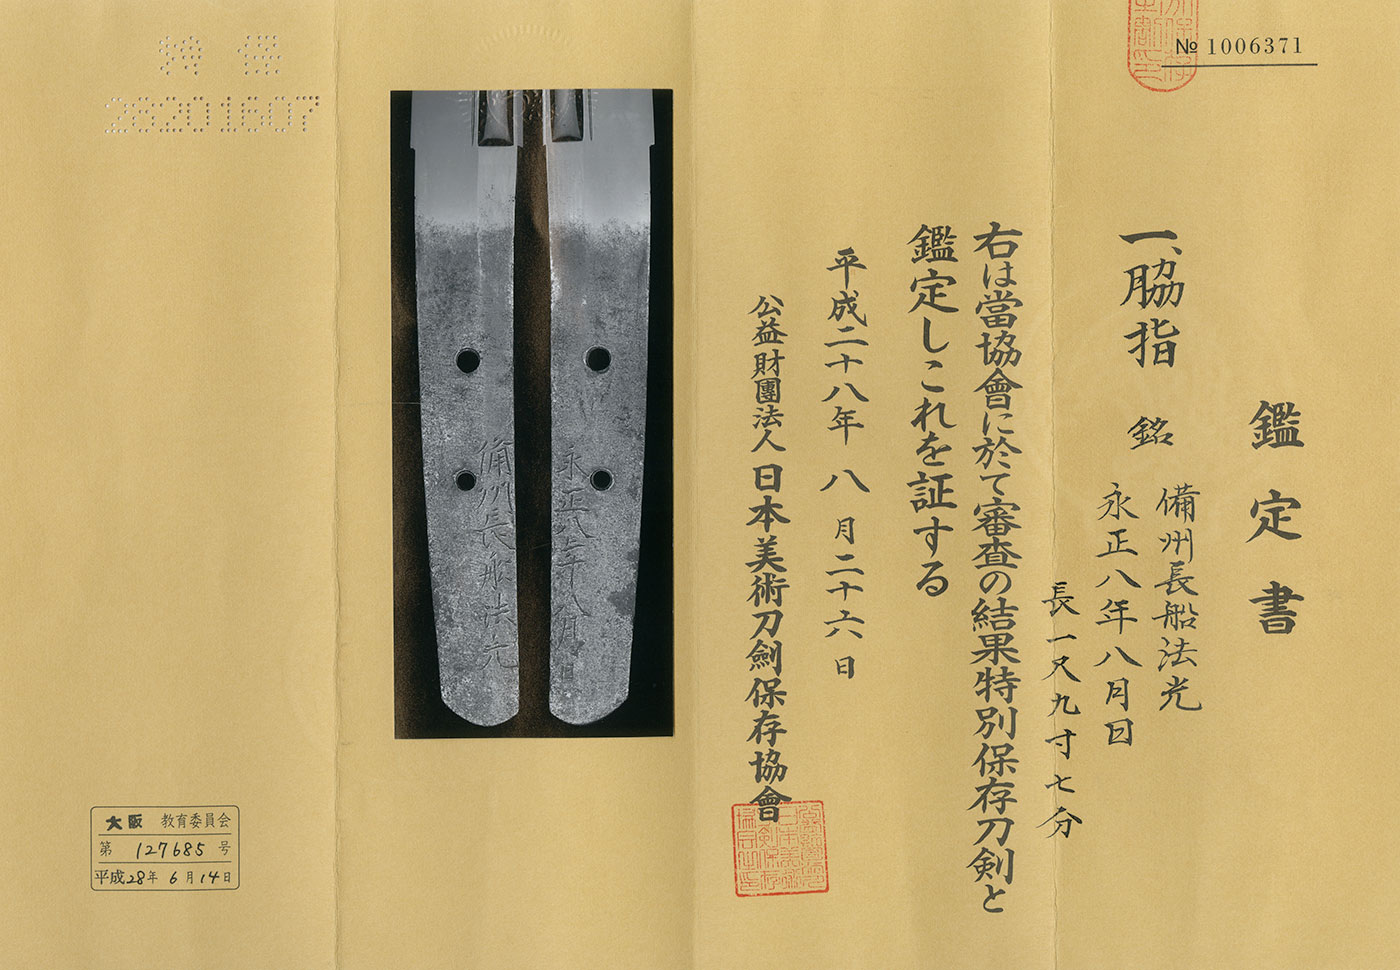 № 1006371
鑑定書
一、脇指 銘 備州長船法光
永正八年八月日
長一尺九寸七分
右は當協會に於て審査の結果特別保存刀剣と
鑑定しこれを証する
平成二十八年 八月二十六日
公益財團法人 日本美術刀剣保存協會
永正八年八月日
備州長船法光
特保
28201607
大阪 教育委員会
第 127685 号
平成28年 6月14日